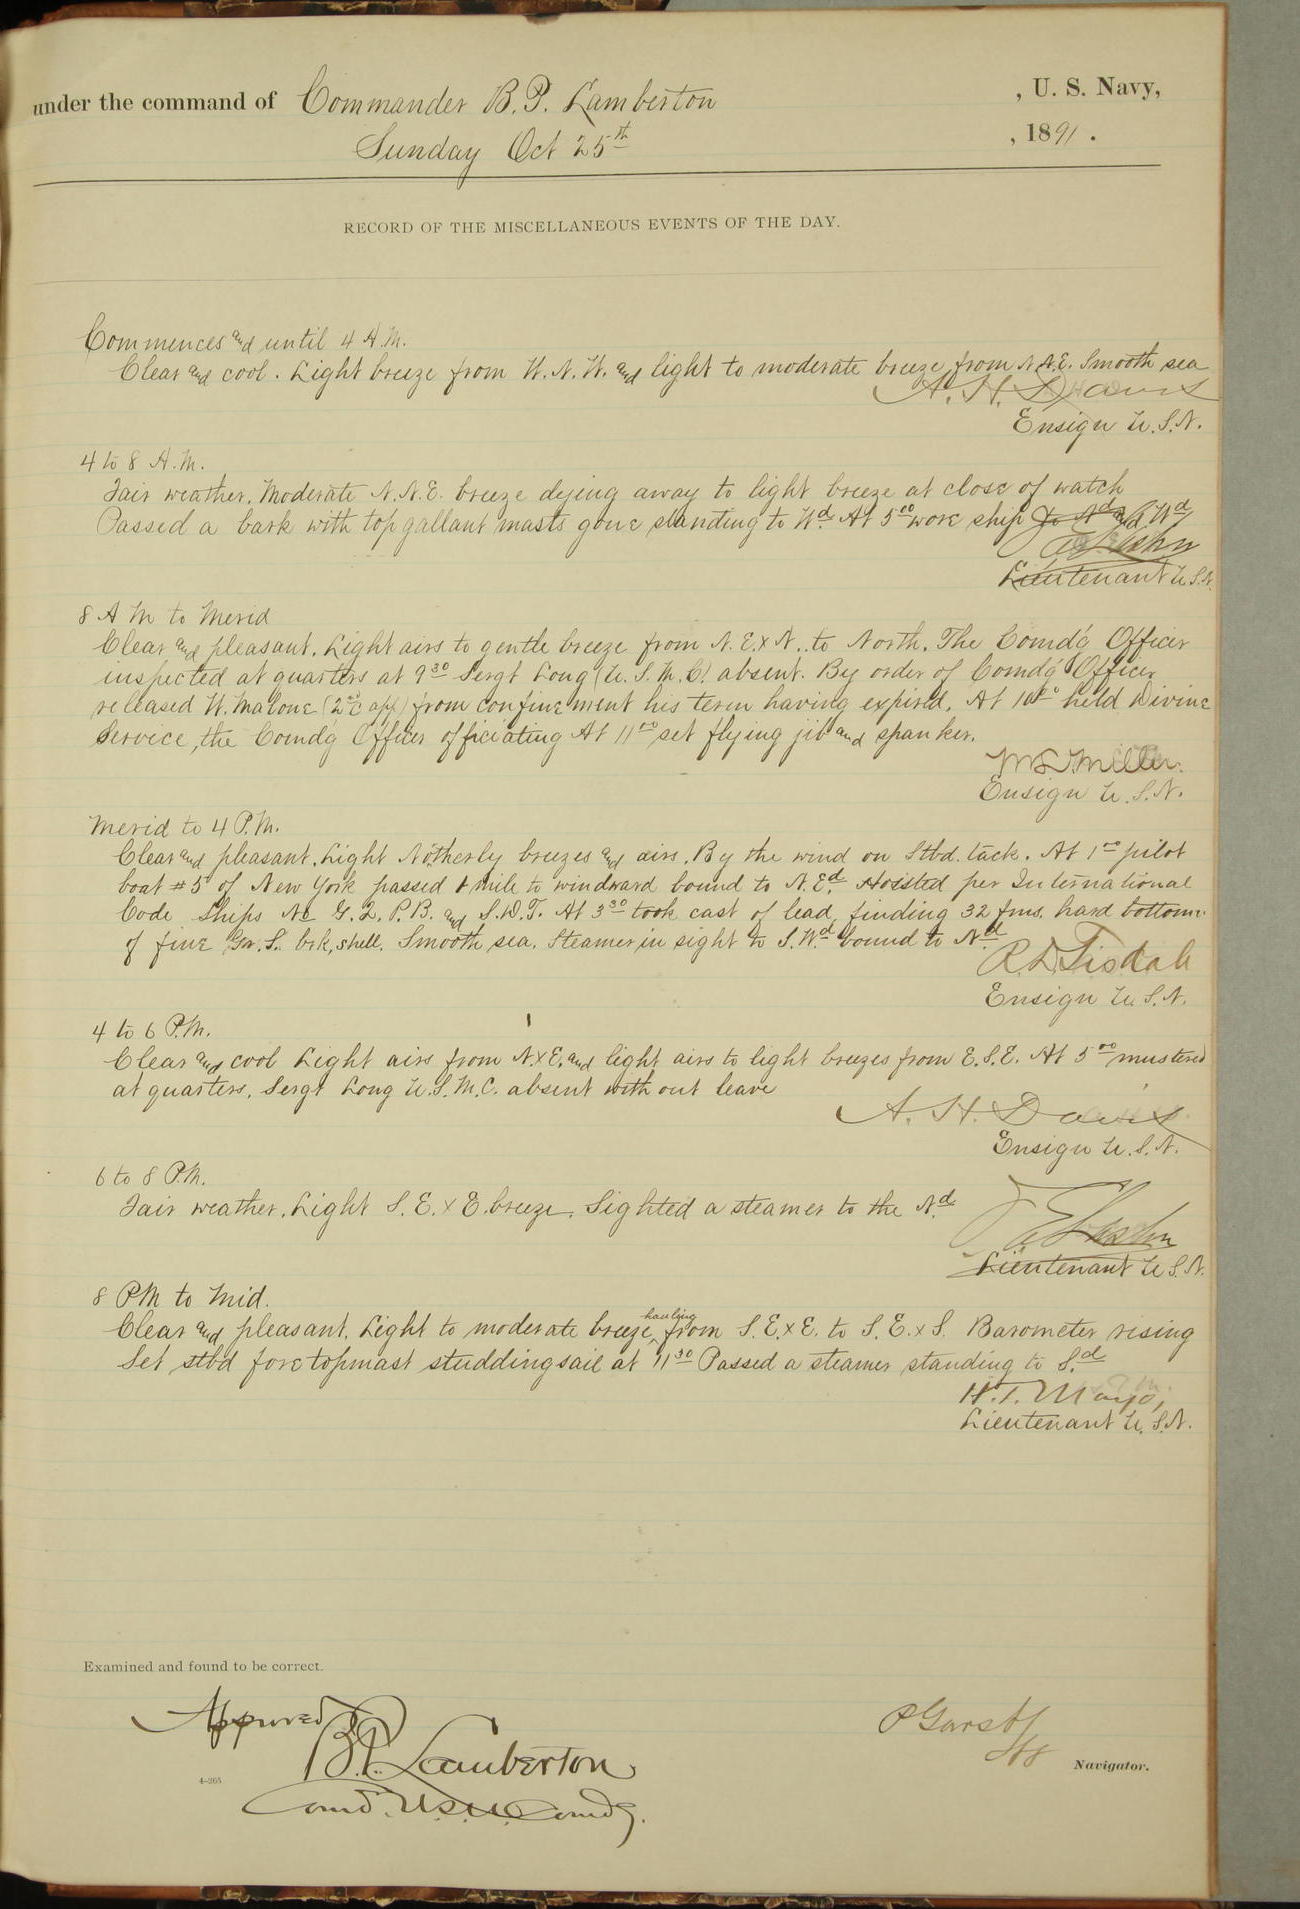 under the command of Commander B. P. Lamberton , U. S. Navy,
Sunday Oct 25th , 1891.
RECORD OF THE MISCELLANEOUS EVENTS OF THE DAY.
Commences and until 4 A.M.
Clear and cool. Light breeze from W.N.W. and light to moderate breeze from N.N.E. Smooth sea
A. H. Davis
Ensign U.S.N.
4 to 8 A.M.
Fair weather. Moderate N.N.E. breeze dying away to light breeze at close of watch
Passed a bark with topgallant masts gone standing to Wd. At 5 00 wore ship to Nd and Wd
Lieutenant U.S.N.
8 A M to Merid
Clear and pleasant. Light airs to gentle breeze from N.E.xN. to North. The Comd'g Officer
inspected at quarters at 9 30 Sergt Long (U.S.M.C.) absent. By order of Comd'g Officer
released W. Malone (2nd C app) from confinement his term having expired. At 10 30 held Divine
Service, the Comd'g Officer officiating At 11 00 set flying jib and spanker.
Miller
Ensign U.S.N.
Merid to 4 P.M.
Clear and pleasant. Light Notherly breezes and airs. By the wind on Stbd. tack. At 1 00 pilot
boat #5 of New York passed 1 mile to windward bound to N.Ed. Hoisted per International
Code Ships No G.Q.P.B. and S.W.T. At 3 30 took cast of lead, finding 32 fms. hard bottom
of fine Gr. S. brk, shell. Smooth sea. Steamer in sight to S.Wd bound to Nd
R. D. Tisdale
Ensign U.S.N.
4 to 6 P.M.
Clear and cool Light airs from NxE. and light airs to light breezes from E.S.E. At 5 00 mustered
at quarters, Sergt Long U.S.M.C. absent with out leave
A. H. Davis
Ensign U.S.N.
6 to 8 P.M.
Fair weather. Light S.E.xE. breeze. Sighted a steamer to the Nd
Lieutenant U.S.N.
8 PM to Mid.
Clear and pleasant. Light to moderate breeze hauling from S.E.xE. to S.E.xS. Barometer rising
Set stbd fore topmast studdingsail at 11 30 Passed a steamer standing to Sd
H. T. Mayo,
Lieutenant U.S.N.
Examined and found to be correct.
Approved
B.P. Lamberton
Comd. U.S.N. Comdg.
P Garst
Navigator.
4—265